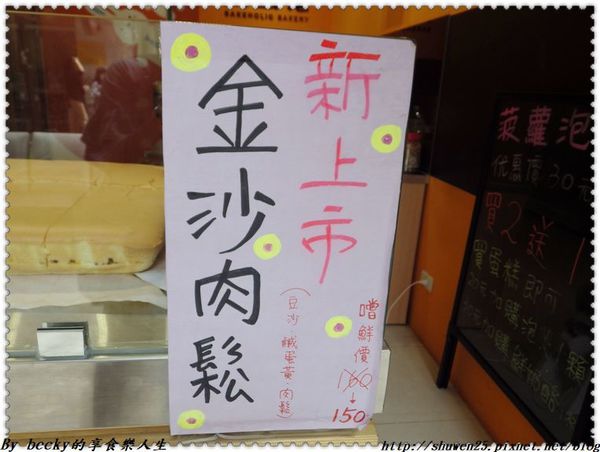 BAKEHOLIC BAKERY
新上市
金沙肉鬆
(豆沙.鹹蛋黃.肉鬆)
嚐鮮價
160
↓
150
菠蘿泡
优惠價30元
買2送1
買蛋糕即可
加購泡
加購鮮奶
By becky的享食樂人生
http://shuwen25.pixnet.net/blog